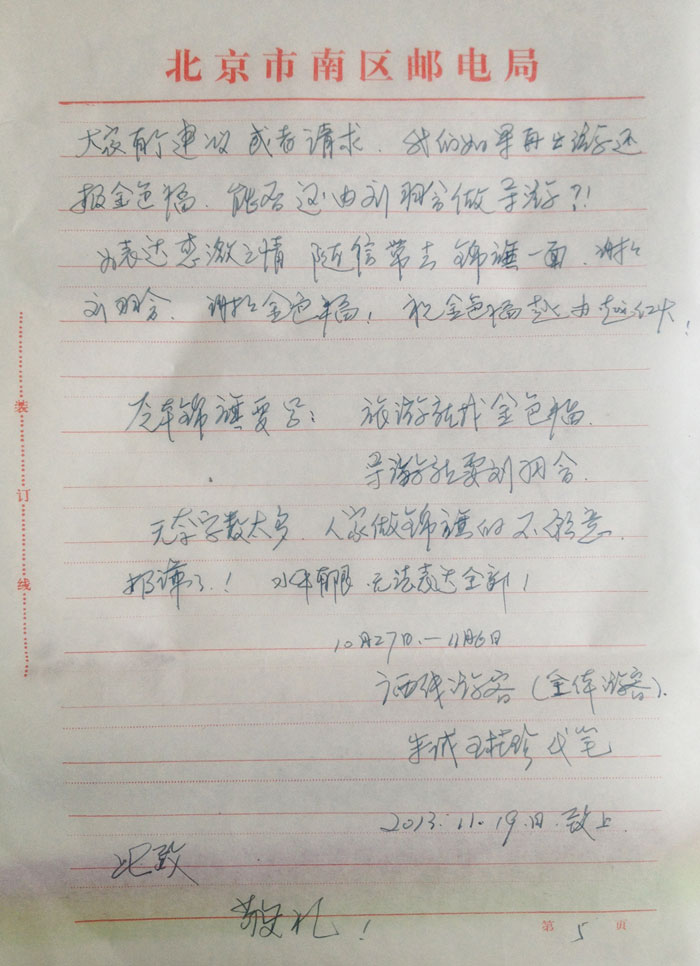 北京市南区邮电局
大家有个建议或者请求.我们如果再出游还
报金色福.能否还由刘羽含做导游?!
为表达感激之情 随信带去锦旗一面.谢谢
刘羽含.谢谢金色福!祝金色福越办越红火!
本锦旗要写:旅游就找金色福.
导游就要刘羽含.
无奈字数太多.人家做锦旗的不愿意.
抱谦了!水平有限.无法表达全部!
10月27日—11月6日
西线游客(全体游客).
朱诚 代笔
2013.11.19.日.致上.
此致
敬礼!
装订线
第5页